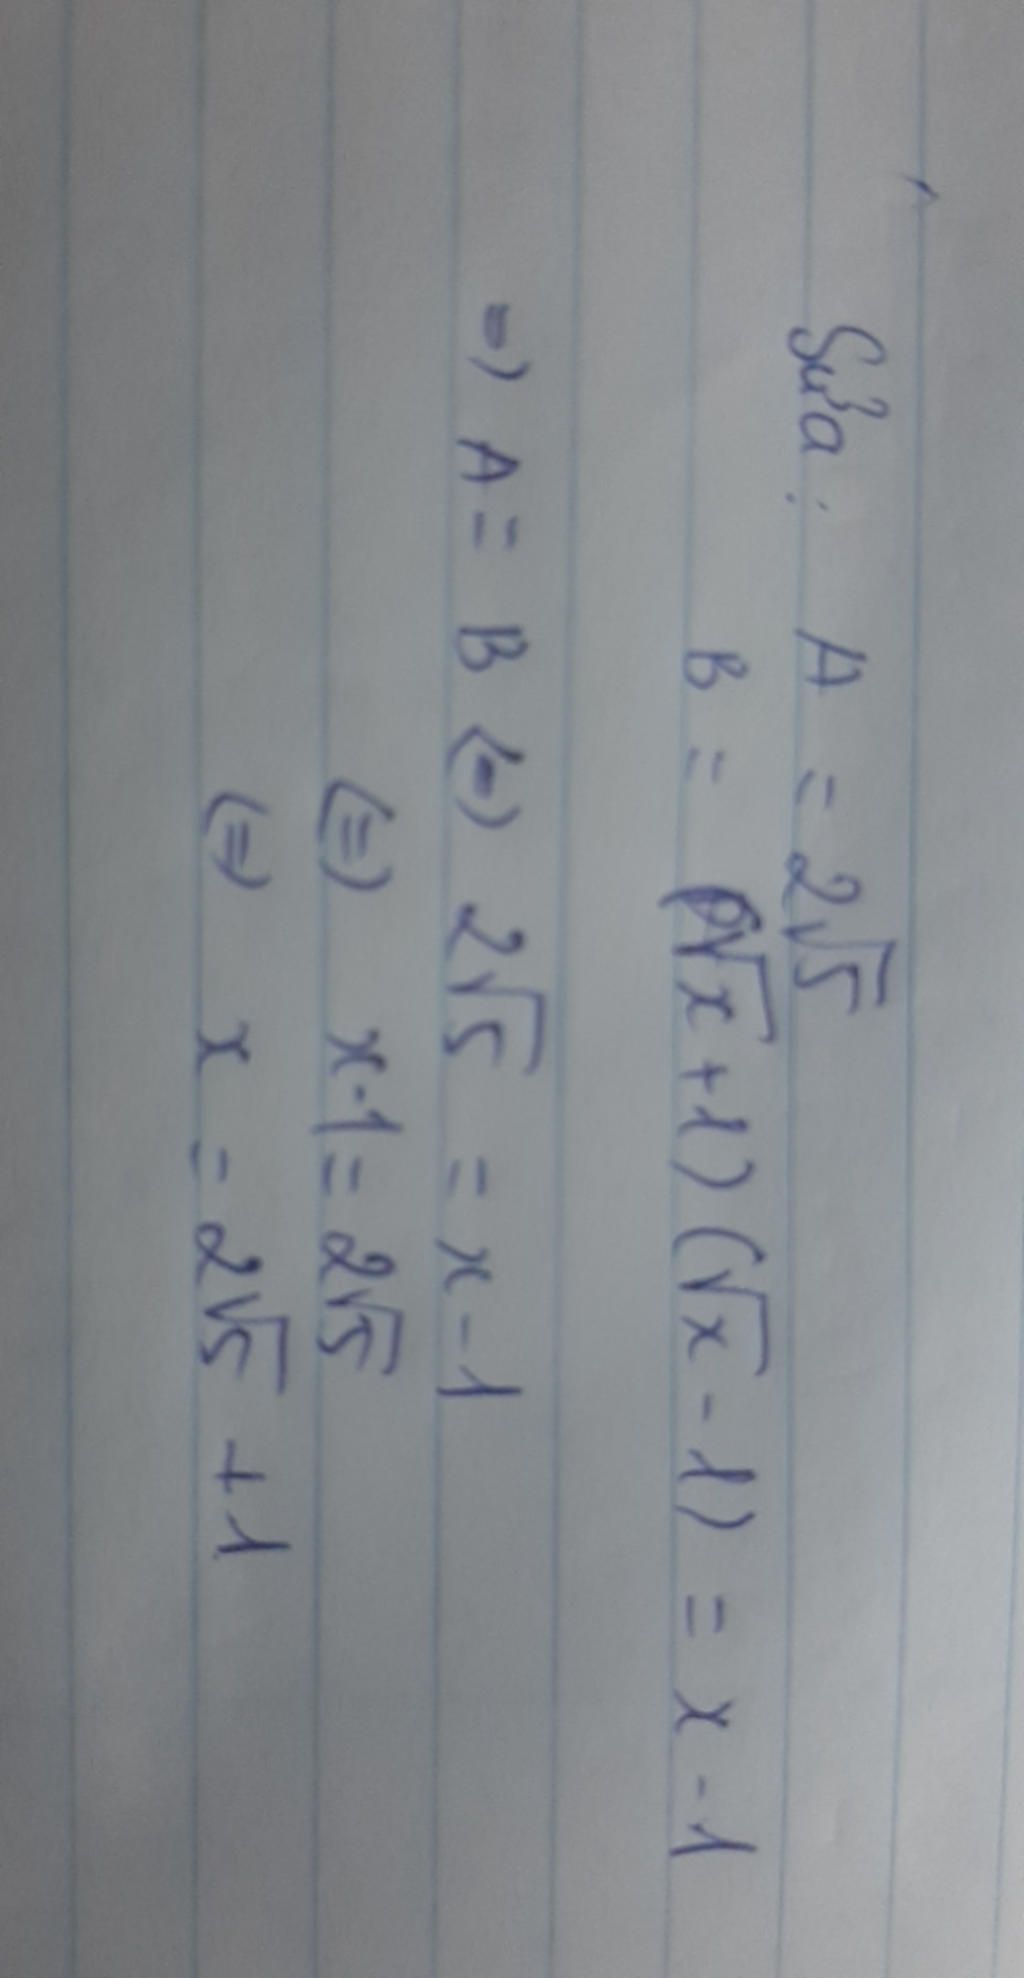 Sửa : A = 2√5
B = (√x + 1) (√x - 1) = x - 1
=) A = B (=) 2√5 = x - 1
(=) x - 1 = 2√5
(=) x = 2√5 + 1